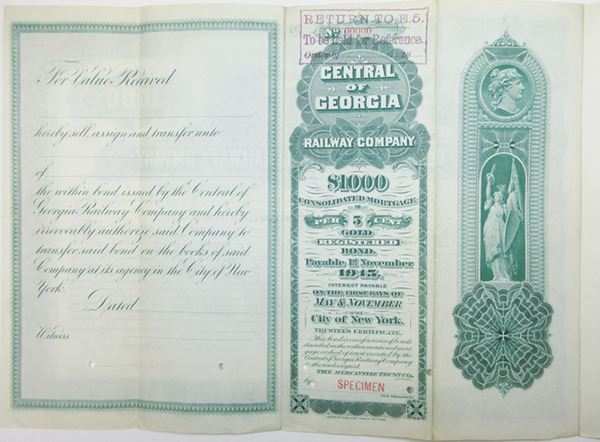 For Value Received
hereby sell, assign and transfer unto
of
the within bond issued by the Central of
Georgia Railway Company and hereby
irrevocably authorize said Company to
transfer said bond on the books of said
Company at its agency in the City of New
York.
Dated
Witness
RETURN TO E. 5.
No 00000
To be held for Reference.
Order of
CENTRAL
OF
GEORGIA
RAILWAY COMPANY
$1000
CONSOLIDATED MORTGAGE
PER 5 CENT
GOLD
REGISTERED
BOND.
Payable, 1st November
1945.
INTEREST PAYABLE
ON THE FIRST DAYS OF
MAY & NOVEMBER
IN THE
City of New York.
TRUSTEE'S CERTIFICATE.
This bond is one of a series of bonds
described in the within mentioned mort
gage or deed of trust executed by the
Central of Georgia Railway Company
to the undersigned.
THE MERCANTILE TRUST CO.
BY
SPECIMEN
VICE PRESIDENT.